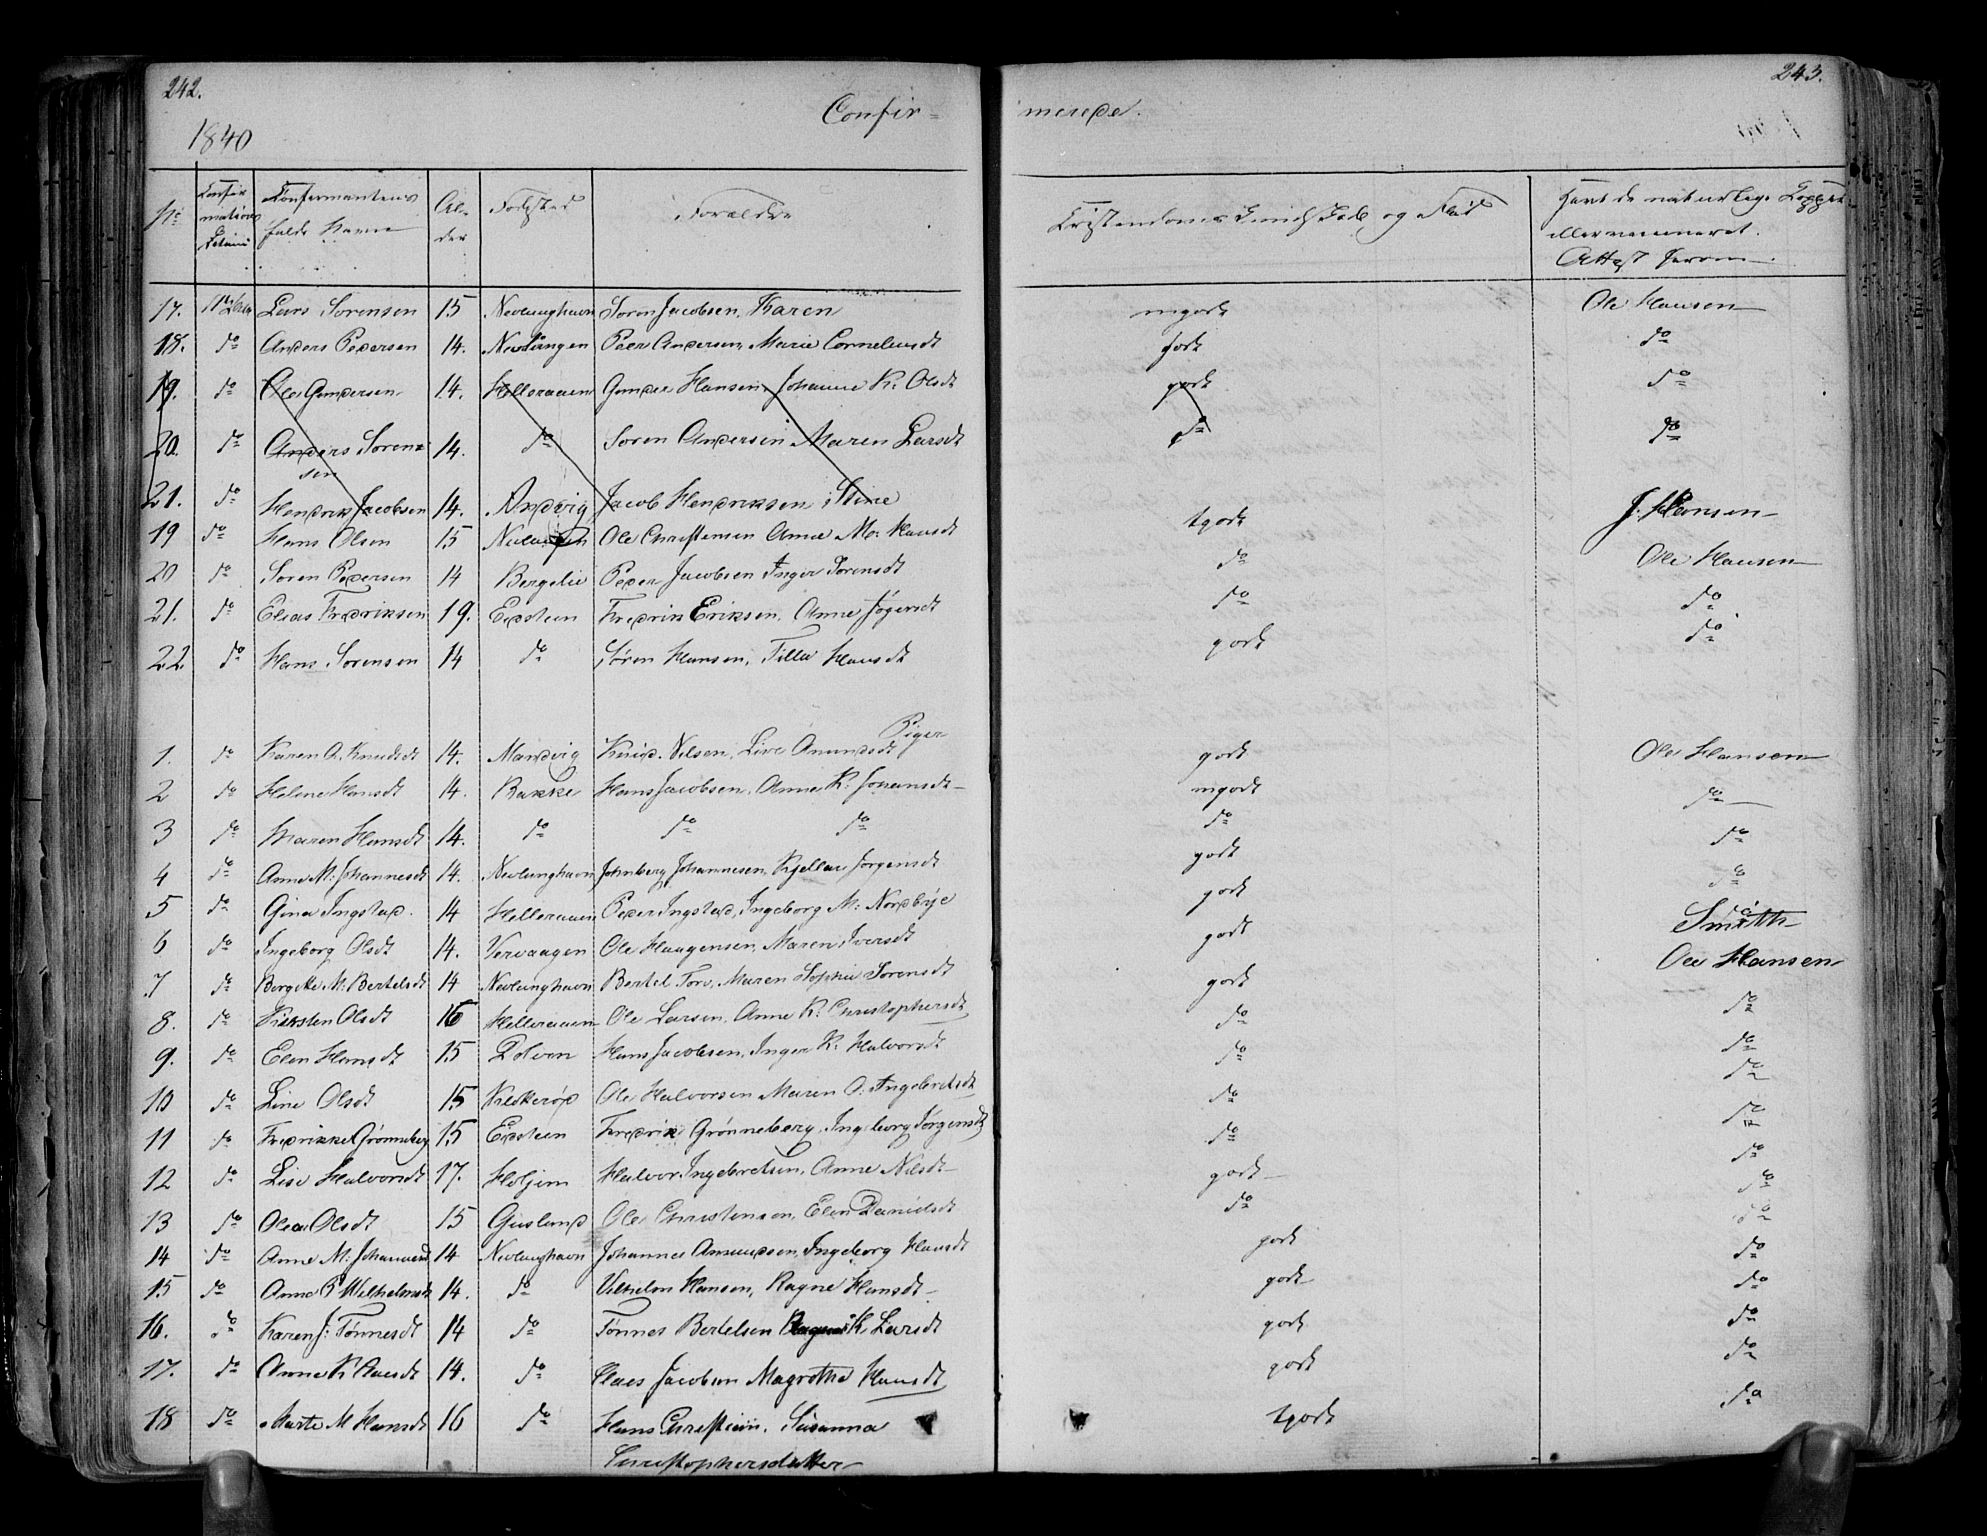 242.
243.
Confir= merede.
1840
No Confirmations Datum Confirmantens fulde Navn Alder Fødested Forældre Christendoms Kundskab og Flid Havt de naturlige Kopper eller vaccineret. Attest herom
17. Lars Sorensen 15 Nevlunghavn Soren Jacobsen, Karen mgodt Ole Hansen
18. do Anders Pedersen 14. Nevlungen Peer Andersen, Marie Corneliusdt godt do
19. do Ole Gundersen 14. Helleraaen Gunder Hansen, Johanne K. Olsdt godt do
20. do Anders Soren= sen 14. do Soren Andersen Maren Larsdt do do
21. do Hendrik Jacobsen 14. Andvig Jacob Hendriksen, Stine
19 do Hans Olsen 15 Ole Christensen Anne M: Hansdt tgodt J. Hansen
20 do Soren Pedersen 14 Bergelie Peder Jacobsen Inger Sorensdt do Ole Hansen
21. do Elias Fredriksen 19. Eidsteen Fredrik Eriksen, Anne Jøgersdt do do
22 do Hans Sorensen 14 do Søren Hansen, Tilla Hansdt godt do
Piger
1. do Karen A. Knudsdt 14. Manvig Knud Nilsen, Live Amundsdt godt Ole Hansen
2 do Helene Hansdt 14. Rakke Hans Jacobsen, Anne K. Johansdt mgodt do
3 do Maren Hansdt 14. do do do do do
4 do Anne M: Johannesdt 14. Nevlunghavn Johnberg Johannesen, Kjellau Jorgensdt godt do
5 do Gina Ingstad. 14 Helleraaen Peder Ingstad, Ingeborg M: Nordbye godt do Smith
6 do Ingeborg Olsdt 14. Vervaagen Ole Haagensen, Maren Iversdt godt Ole Hansen
7 do Bergitte M. Bertelsdt 14 Nevlunghavn Bertel Torv, Maren Sophie Sorensdt godt do
8. do Kirsten Olsdt 16 Helleraaen Ole Larsen, Anne K. Christophersdt do do
9. do Elen Hansdt 15 Dolven Hans Jacobsen, Inger K. Halvorsdt do do
10 do Line Olsdt 15 Kilderøp Ole Halvorsen Maren O: Ingebretsdt do do
11 do Fredrikke Grønneberg 15 Eidsteen Fredrik Grønneberg, Ingeborg Jørgensdt do do
12 do Lise Halvorsdt 17. Holjem Halvor Ingebretsen, Anne Nilsdt godt do
13 do Olea Olsdt 15 Gusland Ole Christensen, Elen Danielsdt do do
14 do Anne M: Johannesdt 14 Nevlunghavn Johannes Amundsen, Ingeborg Hansdt godt do
15 do Anne P Wilhelmsdt 14. do Vilhelm Hansen, Ragne Hansdt godt do
16. do Karen J: Tønnesdt 14 do Tønnes Bertelsen K. Larsdt godt do
17. do Anne K Claesdt 14. do Claes Jacobsen Magrethe Hansdt godt do
18 do Marte M Hansdt 16 do Hans Christian, Susanna Christophersdatter tgodt do